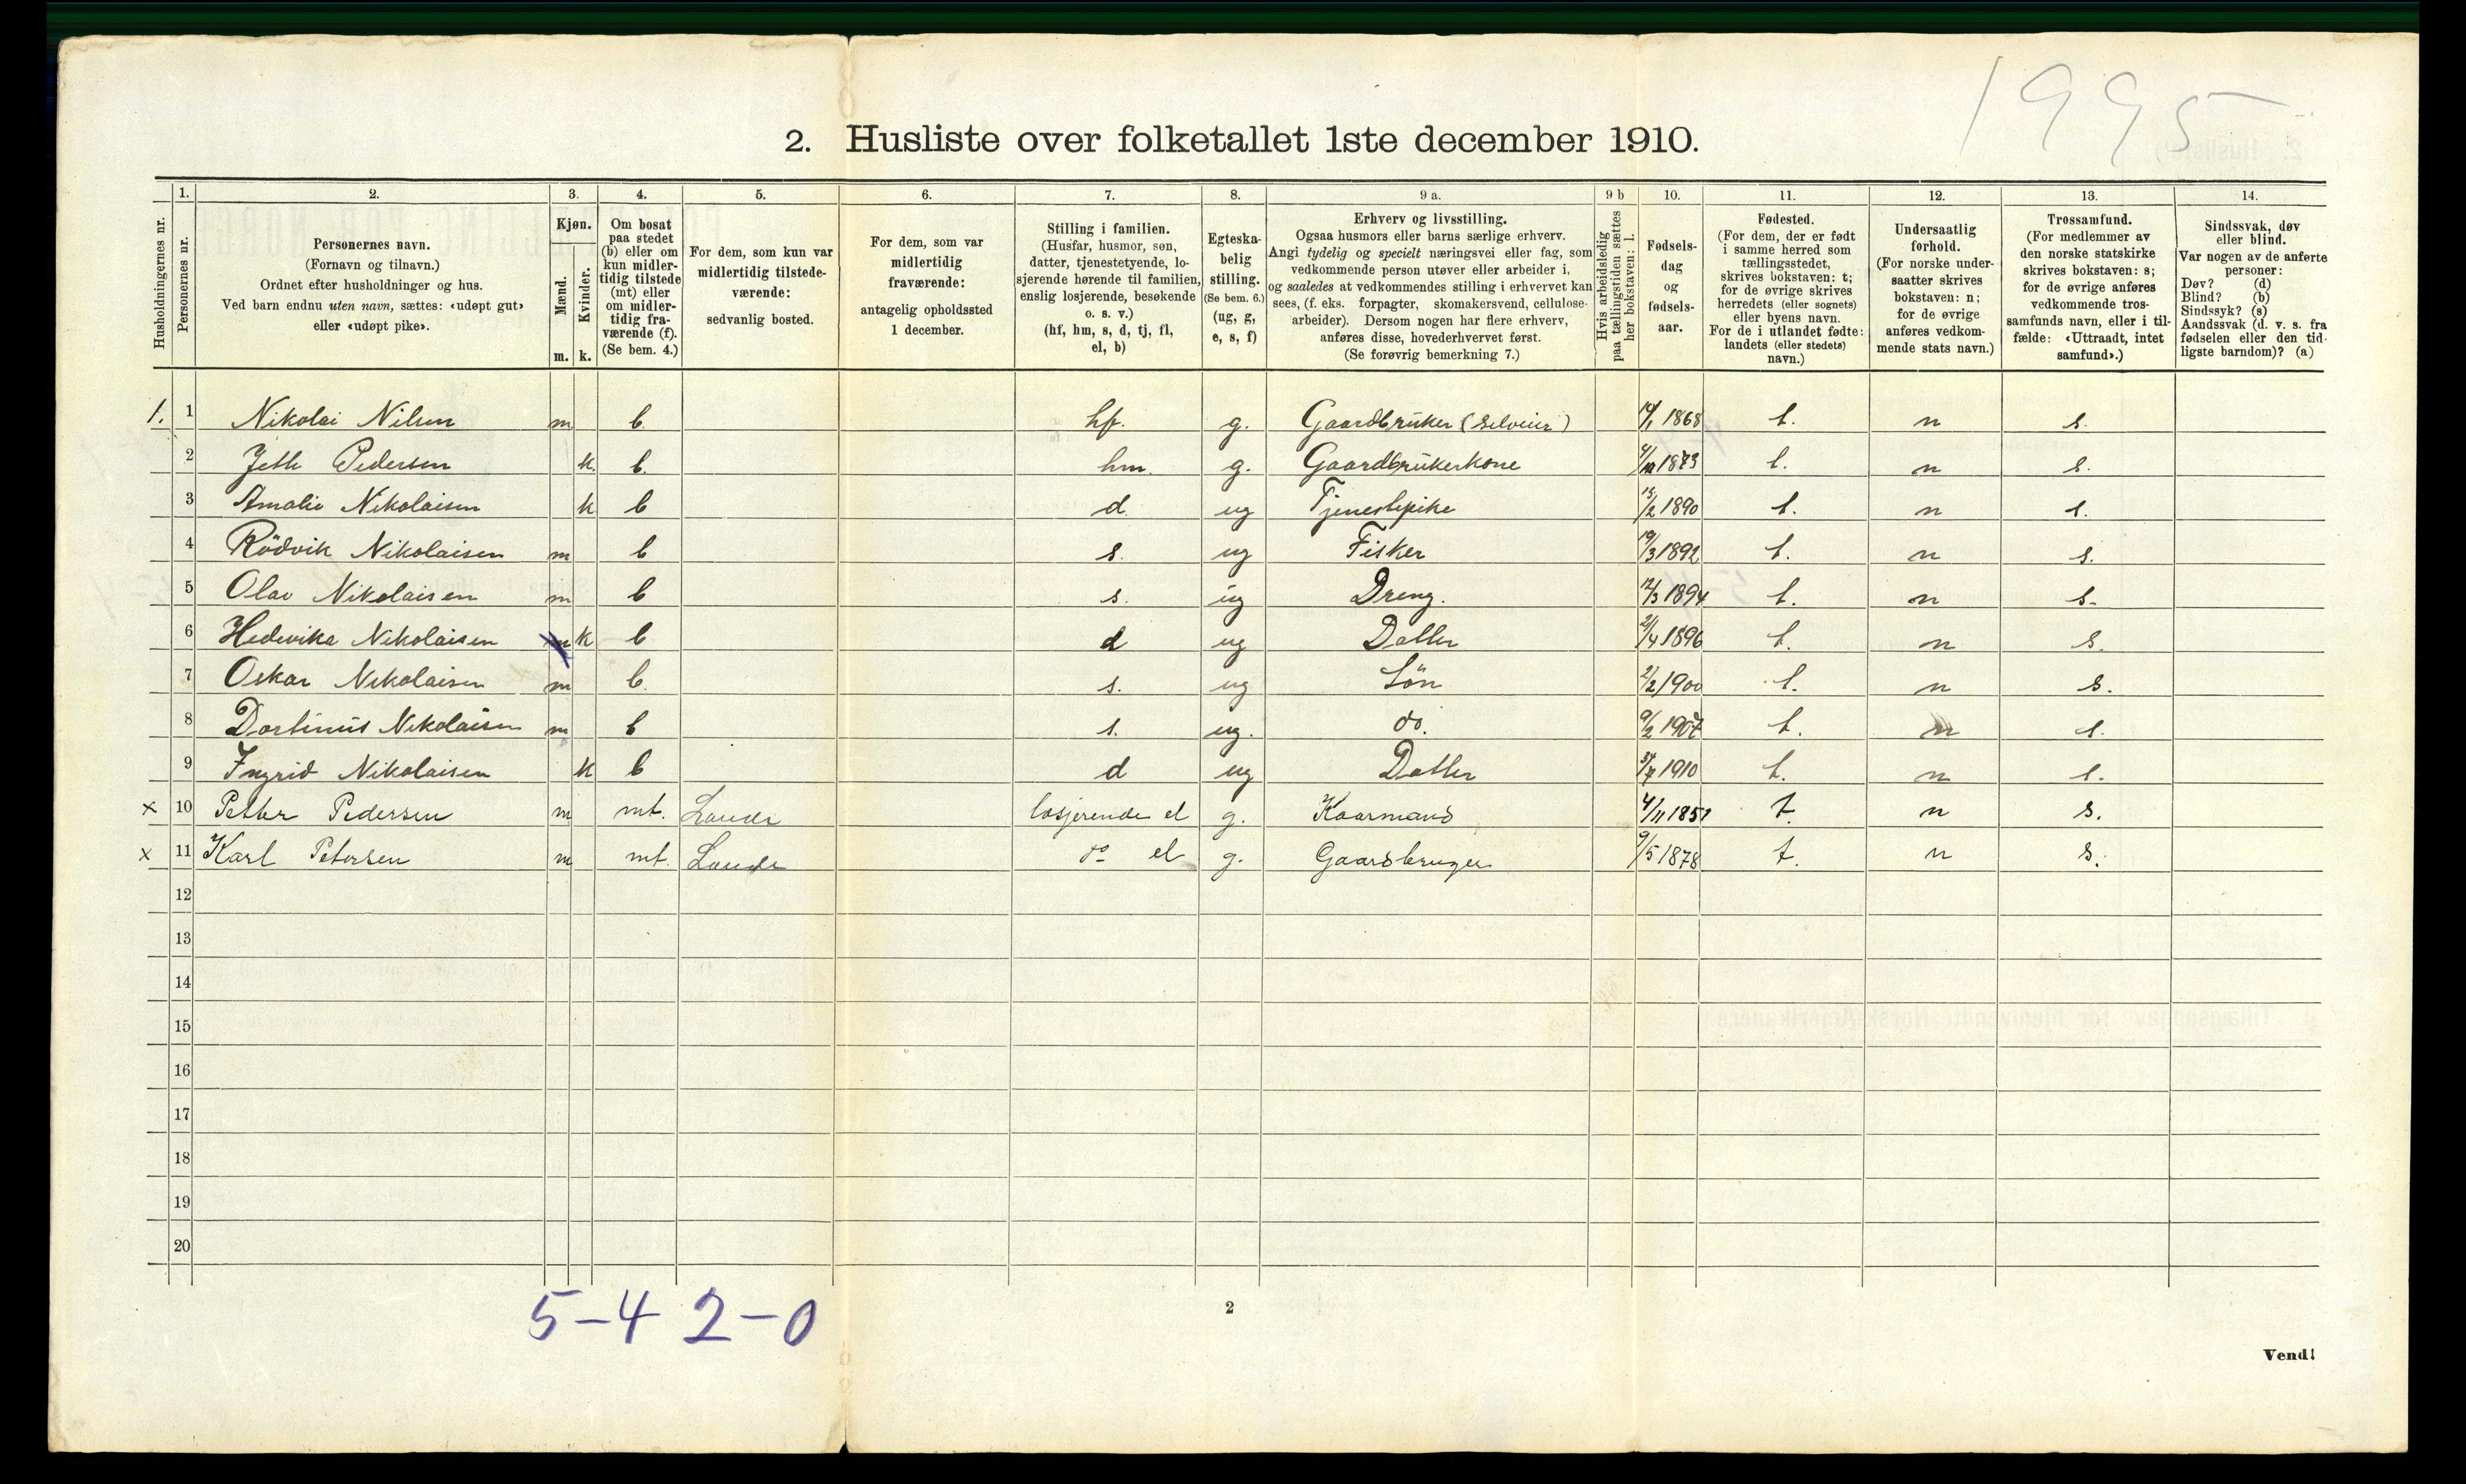 1995
2. Husliste over folketallet 1ste december 1910.
1. 2. 3. 4. 5. 6. 7. 8. 9 a. 9 b 10. 11. 12. 13. 14.
Husholdningernes nr.
Personernes nr.
Personernes navn.
(Fornavn og tilnavn.)
Ordnet efter husholdninger og hus.
Ved barn endnu uten navn, sættes: «udøpt gut»
eller «udøpt pike».
Kjøn.
Mænd.
m.
Kvinder.
k.
Om bosat
paa stedet
(b) eller om
kun midler-
tidig tilstede
(mt) eller
om midler-
tidig fra-
værende (f).
(Se bem. 4.)
For dem, som kun var
midlertidig tilstede-
værende:
sedvanlig bosted.
For dem, som var
midlertidig
fraværende:
antagelig opholdssted
1 december.
Stilling i familien.
(Husfar, husmor, søn,
datter, tjenestetyende, lo-
sjerende hørende til familien,
enslig losjerende, besøkende
o. s. v.)
(hf, hm, s, d, tj, fl,
el, b)
Egteska-
belig
stilling.
(Se bem. 6.)
(ug, g,
e, s, f)
Erhverv og livsstilling.
Ogsaa husmors eller barns særlige erhverv.
Angi tydelig og specielt næringsvei eller fag, som
vedkommende person utøver eller arbeider i,
og saaledes at vedkommendes stilling i erhvervet kan
sees, (f. eks. forpagter, skomakersvend, cellulose-
arbeider). Dersom nogen har flere erhverv,
anføres disse, hovederhvervet først.
(Se forøvrig bemerkning 7.)
Hvis arbeidsledig
paa tællingstiden sættes
her bokstaven: l.
Fødsels-
dag
og
fødsels-
aar.
Fødested.
(For dem, der er født
i samme herred som
tællingsstedet,
skrives bokstaven: t;
for de øvrige skrives
herredets (eller sognets)
eller byens navn.
For de i utlandet fødte:
landets (eller stedets)
navn.)
Undersaatlig
forhold.
(For norske under-
saatter skrives
bokstaven: n;
for de øvrige
anføres vedkom-
mende stats navn.)
Trossamfund.
(For medlemmer av
den norske statskirke
skrives bokstaven: s;
for de øvrige anføres
vedkommende tros-
samfunds navn, eller i til-
fælde: «Uttraadt, intet
samfund».)
Sindssvak, døv
eller blind.
Var nogen av de anførte
personer:
Døv? (d)
Blind? (b)
Sindssyk? (s)
Aandssvak (d. v. s. fra
fødselen eller den tid-
ligste barndom)? (a)
1. 1 Nikolai Nilsen m b. hf. g. Gaardbruker (Selveier) 1868 t. n s.
2 Pedersen k. b. hm. g. Gaardbrukerkone 1873 t. n s.
3 Amalie Nikolaisen k b d ug Tjenestepike 15/2 1890 t. n s.
4 Rödvik Nikolaisen m b s. ug Fisker 19/3 1892 t. n s.
5 Olav Nikolaisen m b s. ug Dreng. 12/3 1894 t. n s.
6 Hedevika Nikolaisen m k b d ug Datter 21/4 1896 t. n s.
7 Oskar Nikolaisen m b. s. ug Sön 2/2 1900 t. n s.
8 Dortinus Nikolaisen m b s. ug. do. 9/2 1907 t. n s.
9 Ingrid Nikolaisen k b d ug Datter 1910 t. n s.
x 10 Petter Pedersen m mt. losjerende el g. Kaarmand 4/11 1851 t. n s.
x 11 Karl Petersen m mt. do el g. Gaardbruger 9/5 1878 t. n s.
12
13
14
15
16
17
18
19
20
5-4 2-0
2
Vend!